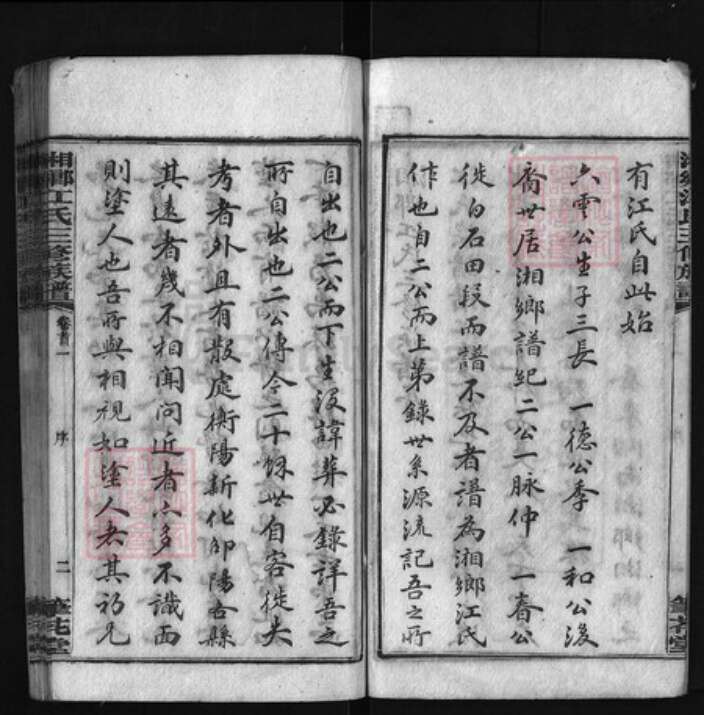 有江氏自此始
六雲公生子三長一德公季一和公後
裔世居湘鄉譜紀二公一脉仲一春公
徙白石田段而譜不及者譜為湘鄉江氏
作也自二公而上第錄世系源流記吾之所
自出也二公而下生沒諱葬必錄詳吾之
所自出也二公傳今二十餘世自客徙失
考者外且有散處衡陽新化邵陽各縣
其遠者幾不相聞問近者亦多不識面
則塗人也吾所與相視如塗人者其初兄
湘鄉江氏三修族譜
卷首一
序
二
筆花堂